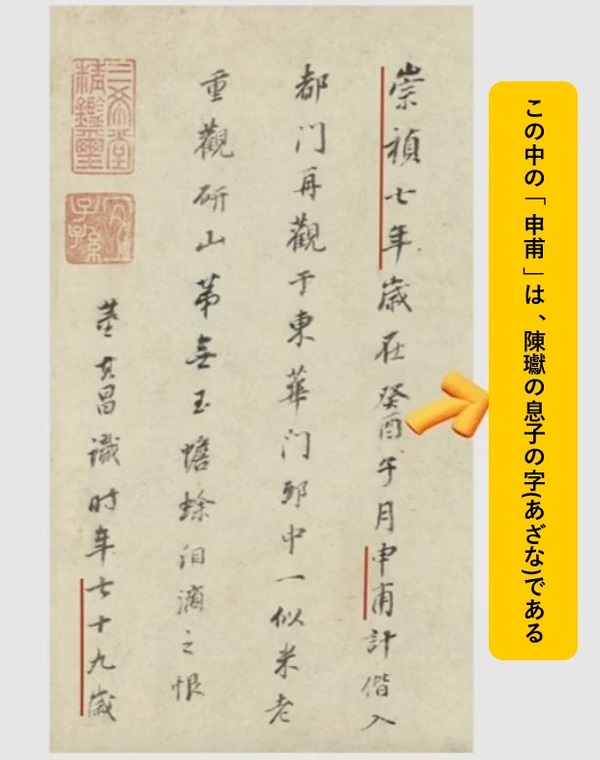 この中の「申甫」は、陳瓛の息子の字(あざな)である
崇禎七年歳在癸酉午月申甫計偕入
都门再觀于東華门邸中一似米老
重觀研山苐無玉蟾蜍泪滴之恨
董其昌識時年七十九歲
三希堂精鑑璽
宜子孫